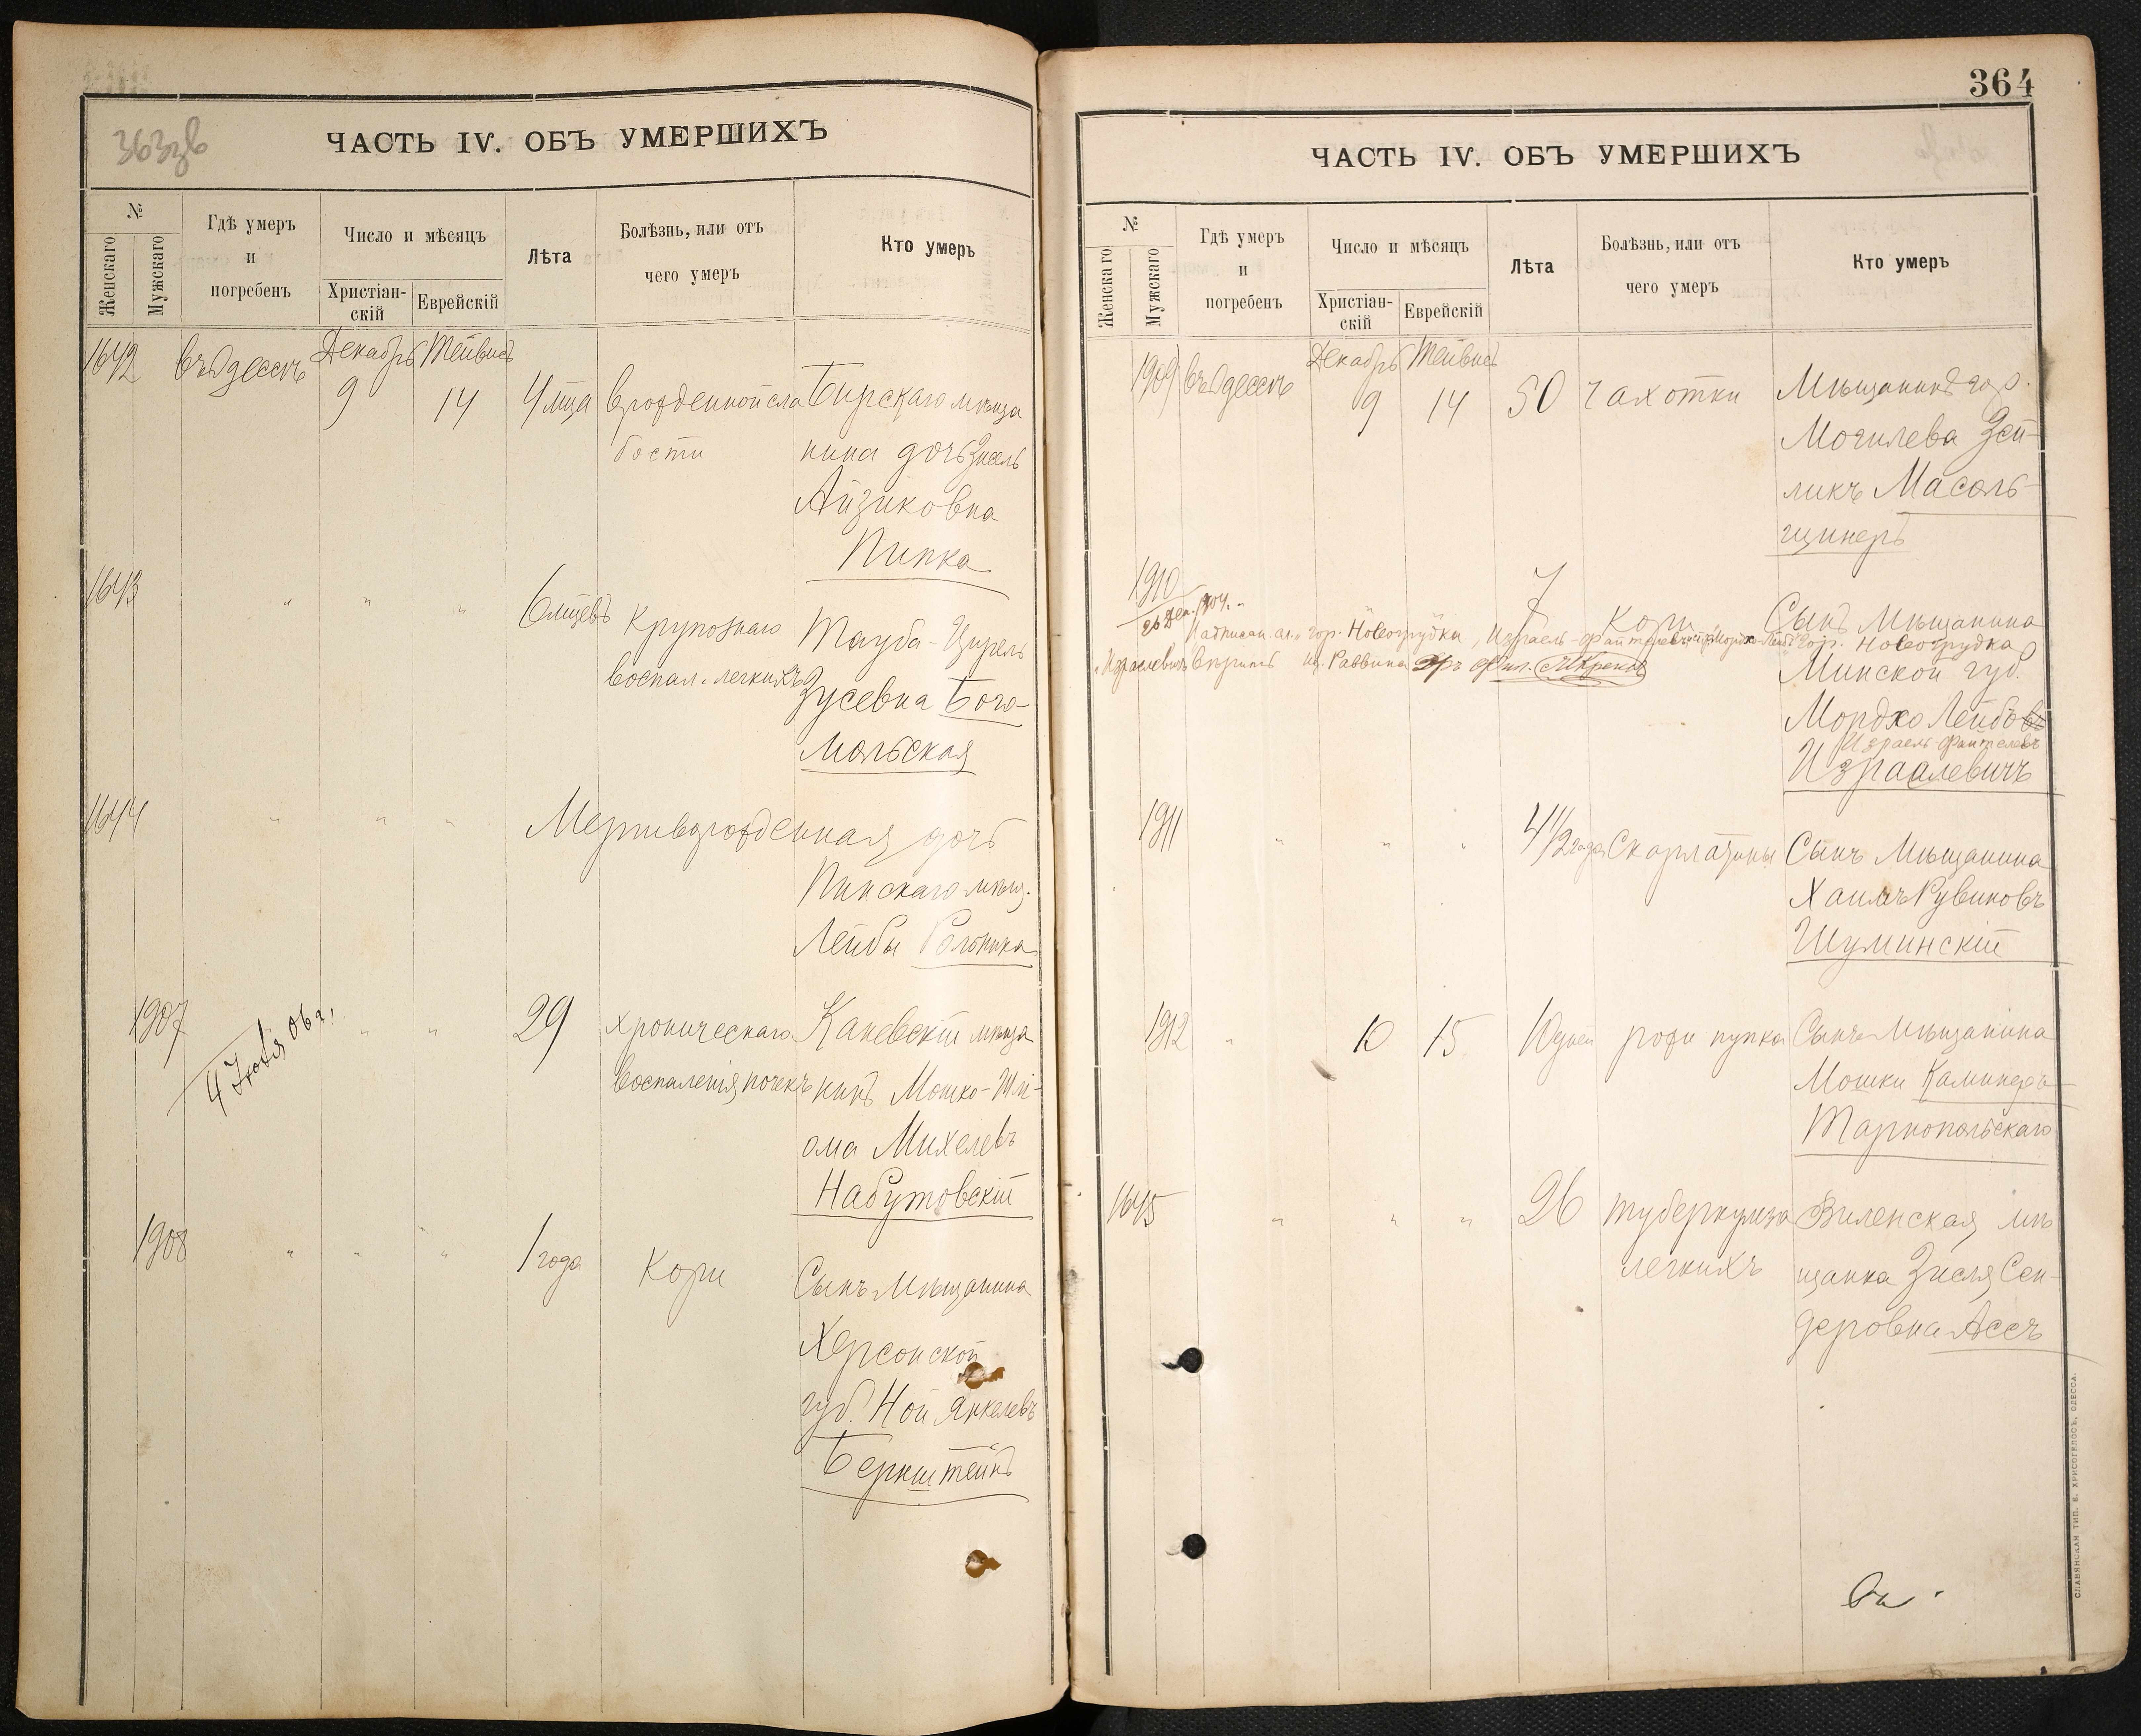 363зв
ЧАСТЬ IV. ОБЪ УМЕРШИХЪ
№
Женскаго
Мужскаго
Гдѣ умеръ
и
погребенъ
Число и мѣсяцъ
Христіан-
скій
Еврейскій
Лѣта
Болѣзнь, или отъ
чего умеръ
Кто умеръ
1642 въ Одессѣ Декабрь Тейвисъ
9 14 4 мца врожденной сла Бирскаго мѣща
бости нина дочь Зисель
Айзиковна
Пипка
1643 " " " 6 мцевъ Крупознаго Тауба-Цирель
воспал. легкихъ Зусевна Бого-
мольская
1644 " " " Мертворожденная дочь
Пинскаго мѣщ.
Лейбы Гольника
1907 4 Іюля 06 г. " " 29 хроническаго Каневскій мѣща
воспаленія почекъ нинъ Мошко-Шлі-
ома Михелевъ
Набутовскій
1908 " " " 1 года Кори Сынъ Мѣщанина
Херсонской
губ. Ной Янкелевъ
Бернштейнъ
364
ЧАСТЬ IV. ОБЪ УМЕРШИХЪ
№
Женскаго
Мужскаго
Гдѣ умеръ
и
погребенъ
Число и мѣсяцъ
Христіан-
скій
Еврейскій
Лѣта
Болѣзнь, или отъ
чего умеръ
Кто умеръ
1909 въ Одессѣ Декабрь Тейвисъ
9 14 50 Чахотки Мѣщанинъ гор.
Могилева Зей-
ликъ Масоль-
щинеръ
1910 7 Кори Сынъ Мѣщанина
26 Дек. 1904.
гор. Новогрудка
гор. Новогрудка, Израель-Файтелевъ Мордхо-Лейбъ
Израелевичъ вѣрить Раввина
Минской губ.
Мордхо Лейбовъ
Израель-Файтелевъ
Израалевичъ
1911 " " " 4 1/2 года Скарлатины Сынъ Мѣщанина
Хаимъ Рувиновъ
Шуминскій
1912 " 10 15 10 дней рожи пупка Сынъ Мѣщанина
Мошки Каминеръ-
Тарнопольскаго
1645 " " " 26 туберкулеза Виленская мѣ
легкихъ щанка Зисля Сен-
деровна Ассъ
СЛАВЯНСКАЯ ТИП. Е. ХРИСОГЕЛОСЪ, ОДЕССА.